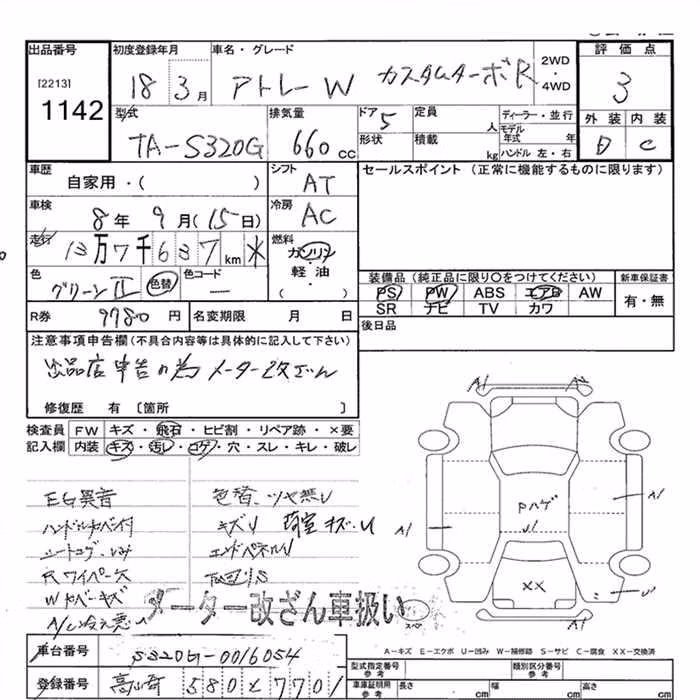 出品番号 初度登録年月 車名・グレード 2WD・4WD 評価点
[2213]
1142
18 3月 アトレーW カスタムターボR 3
型式 排気量 ドア 5 定員 人 ディーラー・並行 外装 内装
TA-S320G 660cc 形状 積載 kg モデル年式 年 ハンドル 左・右 D C
車歴 シフト セールスポイント (正常に機能するものに限ります)
自家用・( ) AT
車検 冷房
8年 9月(15日) AC
走行 燃料
13万7千637km ガソリン
軽・油
・( )
色 色替 色コード 装備品 (純正品に限り○をつけてください) 新車保証書
グリーンII ー PS PW ABS エアB AW 有・無
SR ナビ TV カワ
R券 9780円 名変期限 月 日 後日品
注意事項申告欄 (不具合内容等は具体的に記入して下さい)
出品店申告の為メーター改ざん
修復歴 有 〔箇所 〕
検査員 FW キズ・飛石・ヒビ割・リペア跡・×要
記入欄 内装 キズ・汚レ・コゲ・穴・スレ・キレ・破レ
EG異音 色替、ツヤ無し
キズU 荷室キズ、U
エンドパネルU
Rワイパー欠
A/C冷え悪い
メーター改ざん車扱い
A1 A2
A1 Pハゲ A1
U1
XX
スペア
A-キズ E-エクボ U-凹み W-補修跡 S-サビ C-腐食 XX-交換済
車台番号 S320G-0016054 型式指定番号 参考 類別区分番号 参考
登録番号 高崎 580 を 7701 車庫証明用 参考 長さ cm 幅 cm 高さ cm